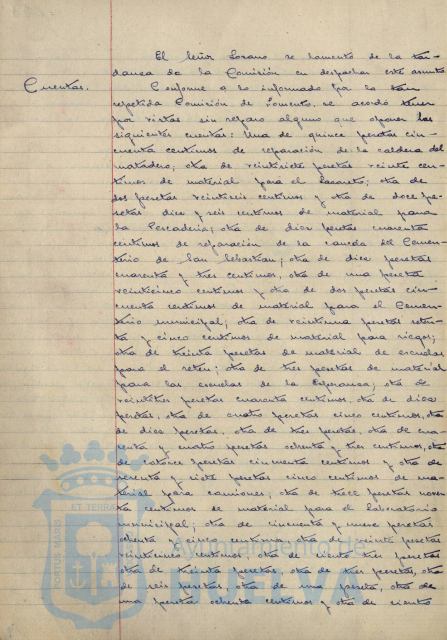 El Señor Lozano se lamentó de la tar-
danza de la Comisión en despachar este asunto
Cuentas.
Conforme a lo informado por la tan
repetida Comisión de Fomento, se acordó tener
por vistas sin reparo alguno que oponer las
siguientes cuentas: Una de quince pesetas cin-
cuenta centimos de reparación de la caldera del
matadero; otra de veintisiete pesetas veinte cen-
timos de material para el Lazareto; otra de
dos pesetas veintiseis centimos y otra de doce pe-
setas diez y seis centimos de material para
la Pescaderia; otra de diez pesetas cuarenta
centimos de reparación de la cancela del Cemen-
terio de San Sebastian; otra de diez pesetas
cuarenta y tres centimos, otra de una peseta
veinticinco centimos y otra de dos pesetas cin-
cuenta centimos de material para el Cemen-
terio municipal; otra de veintiuna pesetas seten-
ta y cinco centimos de material para riegos;
otra de treinta pesetas de material de escuelas
para el reten; otra de tres pesetas de material
para las escuelas de la Esperanza; otra de
veintitres pesetas cuarenta centimos, otra de diez
pesetas, otra de cuatro pesetas cinco centimos, otra
de diez pesetas, otra de tres pesetas, otra de
y cuatro pesetas ochenta y tres centimos, otra
de catorce pesetas cincuenta centimos y otra de
y siete pesetas cinco centimos de ma-
terial para camiones; otra de trece pesetas noven-
ta centimos de material para el laboratorio
municipal; otra de cincuenta y nueve pesetas
ochenta y cinco centimos, otra de veinte pesetas
veinticinco centimos, otra de ciento tres pesetas
otra de treinta pesetas, otra de tres pesetas, otra
de seis pesetas, otra de una peseta, otra de
una peseta ochenta centimos y otra de ciento
PORTUS MARIS
ET TERRAE
Ayuntamiento de
HUELVA